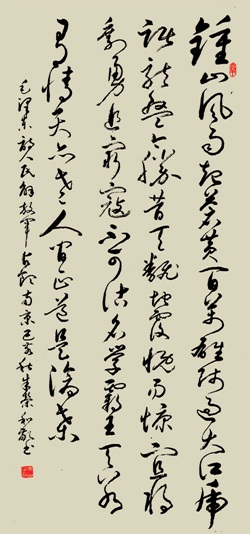 鍾山风雨起苍黄百万雄师过大江虎
踞龙盘今胜昔天翻地覆慨而慷宜将
剩勇追穷寇不可沽名学霸王天若
有情天亦老人间正道是沧桑
毛泽东诗人民解放军占领南京己亥秋